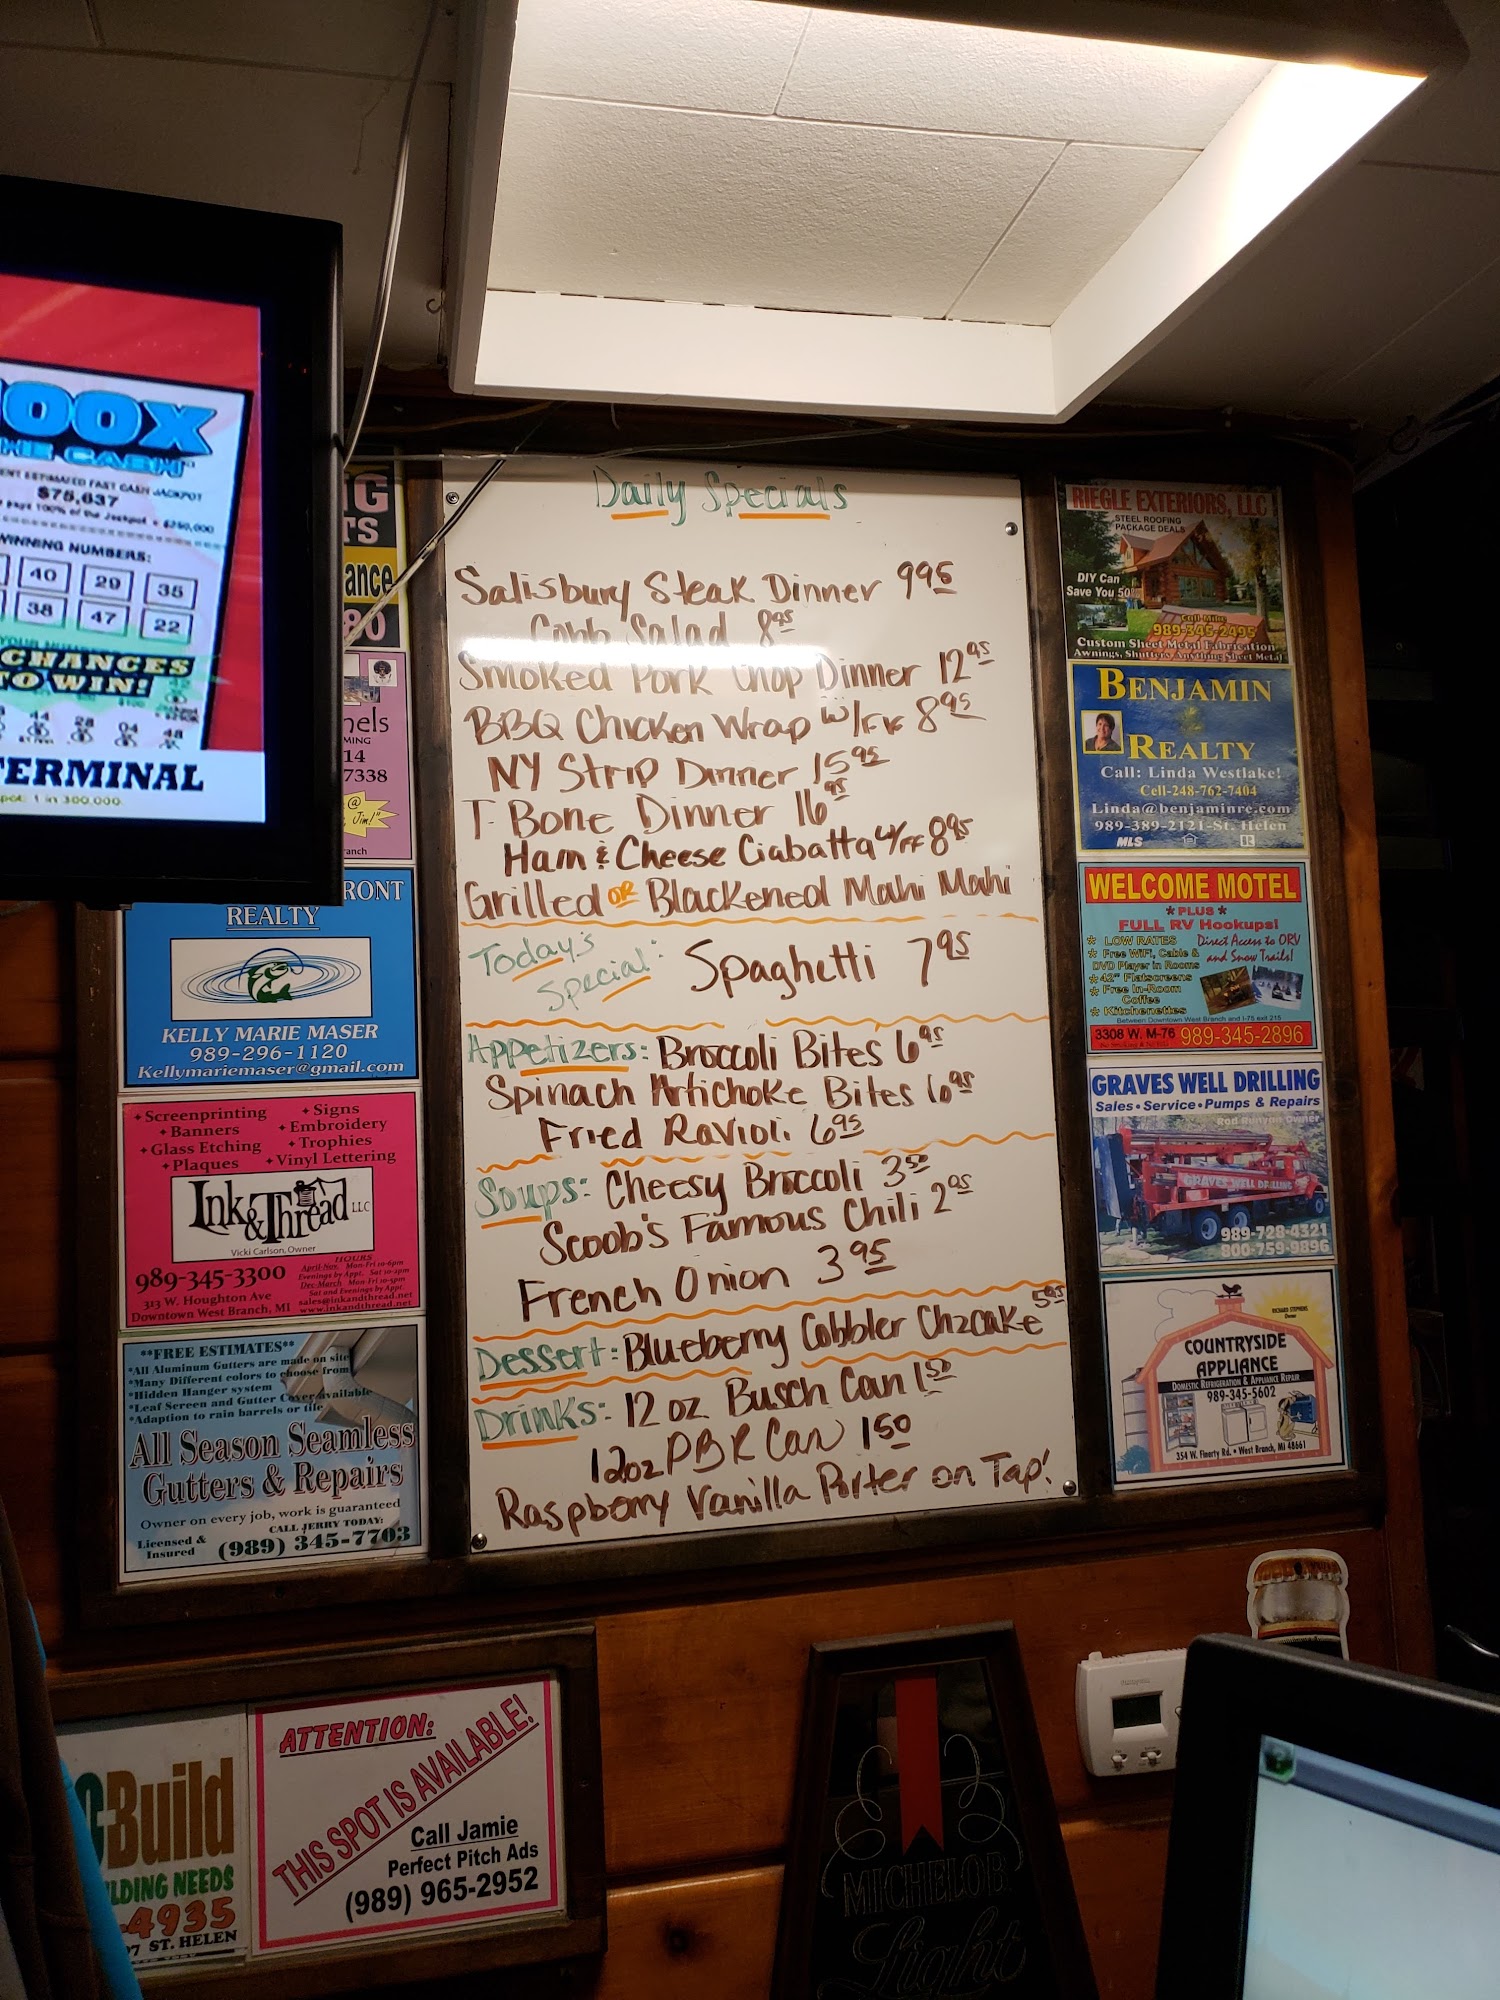 00X
HE CASH
ENT ESTIMATED FAST CASH JACKPOT
$75,637
pays 100% of the Jackpot
WINNING NUMBERS:
40 29 35
38 47 22
YOUR NUMBERS
CHANCES
TO WIN!
44 28 04 48
TERMINAL
pot: 1 in 300,000.
G
TS
ance
80
nels
MING
14
7338
@
Jim!"
ranch
RONT
REALTY
KELLY MARIE MASER
989-296-1120
Kellymariemaser@gmail.com
+Screenprinting
+Banners
+Glass Etching
+Plaques
+Signs
+Embroidery
+Trophies
+Vinyl Lettering
Ink&Thread LLC
Vicki Carlson, Owner
989-345-3300
313 W. Houghton Ave
Downtown West Branch, MI
HOURS
April-Nov. Mon-Fri 10-6pm
Evenings by Appt. Sat 10-2pm
Dec-March Mon-Fri 10-5pm
Sat and Evenings by Appt.
sales@inkandthread.net
www.inkandthread.net
**FREE ESTIMATES**
*All Aluminum Gutters are made on site
*Many Different colors to choose from
*Hidden Hanger system
*Leaf Screen and Gutter Cover available
*Adaption to rain barrels or tile
All Season Seamless
Gutters & Repairs
Owner on every job, work is guaranteed
CALL JERRY TODAY:
Licensed &
Insured
(989) 345-7703
Daily Specials
Salisbury Steak Dinner 9 95
Cobb Salad 8 95
Smoked Pork Chop Dinner 12 95
BBQ Chicken Wrap w/FF 8 95
NY Strip Dinner 15 95
T-Bone Dinner 16 95
Ham & Cheese Ciabatta w/FF 8 95
Grilled OR Blackened Mahi Mahi
Today's
Special: Spaghetti 7 95
Appetizers: Broccoli Bites 6 95
Spinach Artichoke Bites 6 95
Fried Ravioli 6 95
Soups: Cheesy Broccoli 3 50
Scoob's Famous Chili 2 95
French Onion 3 95
Dessert: Blueberry Cobbler Chzcake 5 95
Drinks: 12 oz Busch Can 1 50
12oz PBR Can 1 50
Raspberry Vanilla Porter on Tap!
RIEGLE EXTERIORS, LLC
STEEL ROOFING
PACKAGE DEALS
DIY Can
Save You 50%
Call Mike
989-345-2495
Custom Sheet Metal Fabrication
Awnings, Shutters, Anything Sheet Metal
BENJAMIN
REALTY
Call: Linda Westlake!
Cell-248-762-7404
Linda@benjaminre.com
989-389-2121-St. Helen
MLS
WELCOME MOTEL
*PLUS*
FULL RV Hookups!
* LOW RATES
* Free WiFi, Cable &
DVD Player in Rooms
* 42" Flatscreens
* Free In-Room
Coffee
* Kitchenettes
Direct Access to ORV
and Snow Trails!
Between Downtown West Branch and I-75 exit 215
3308 W. M-76 989-345-2896
GRAVES WELL DRILLING
Sales • Service • Pumps & Repairs
Rod Runyan Owner
GRAVES WELL DRILLING
989-728-4321
800-759-9896
RICHARD STEPHENS
Owner
COUNTRYSIDE
APPLIANCE
DOMESTIC REFRIGERATION & APPLIANCE REPAIR
989-345-5602
354 W. Finerty Rd. • West Branch, MI 48661
-Build
LDING NEEDS
-4935
07 ST. HELEN
ATTENTION:
THIS SPOT IS AVAILABLE!
Call Jamie
Perfect Pitch Ads
(989) 965-2952
MICHELOB
Light